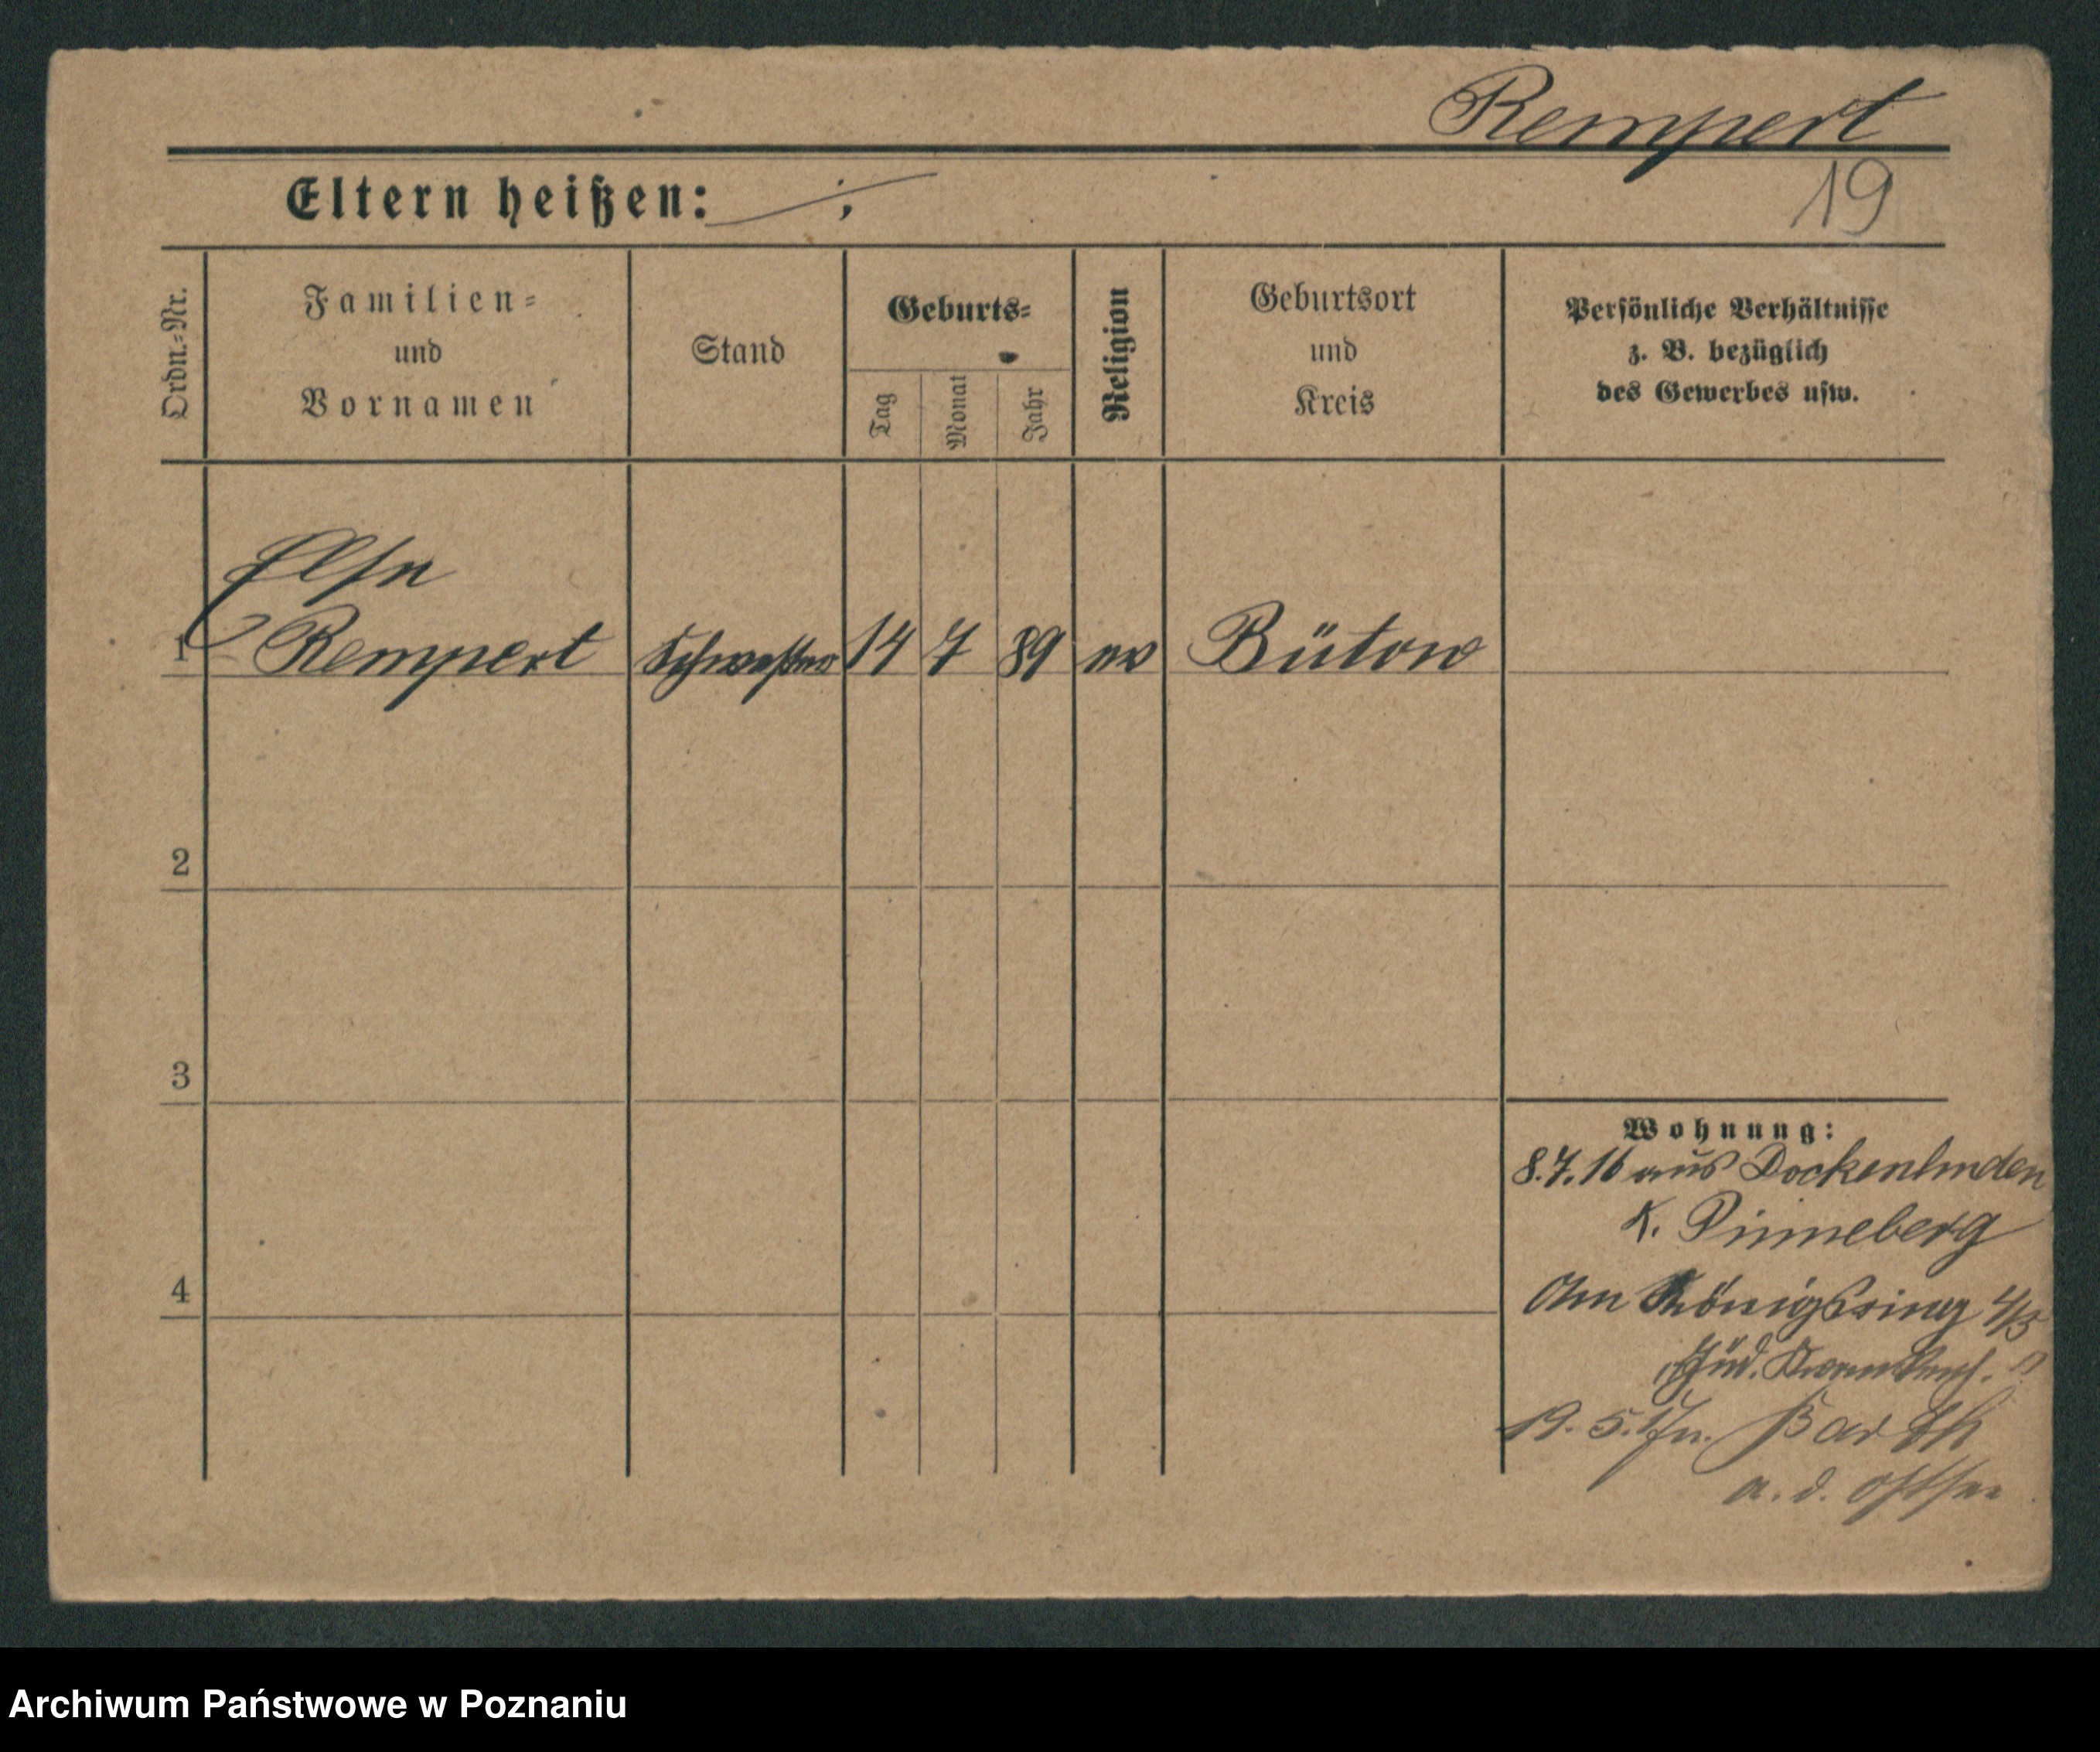 Rempert
19
Eltern heißen: ./.
Ordn.-Nr.
Familien-
und
Vornamen
Stand
Geburts-
Tag
Monat
Jahr
Religion
Geburtsort
und
Kreis
Persönliche Verhältnisse
z. B. bezüglich
des Gewerbes usw.
Else
1 Rempert Schwester 14 7 89 ev Bütow
2
3
4
Wohnung:
8.7.16 aus Dockenhuden
K. Pinneberg
Am Königsring 4/5
Jüd. Krankenh.
19. 5. 17 n. Barth
a. d. Ostsee
Archiwum Państwowe w Poznaniu